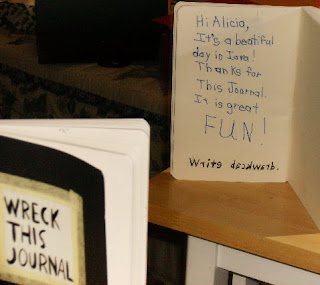 Hi Alicia,
It's a beatiful
day in Iowa!
Thanks for
This Journal.
It is great
FUN!
Write backwards.
WRECK
THIS
JOURNAL